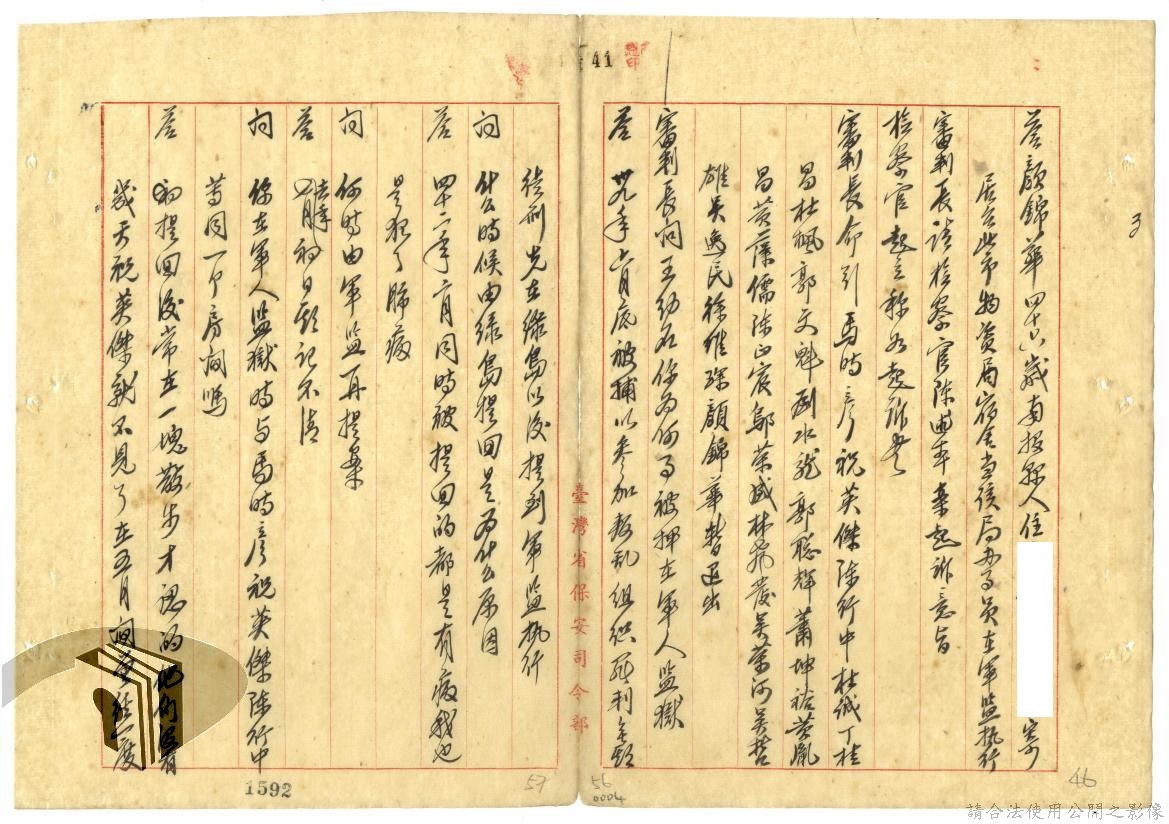 3
41
答 顏錦華四十六歲南投縣人住 寄
居台北市物資局宿舍當該局办事員在軍監執行
審判長請檢察官陳述本案起訴意旨
檢察官起立称如起訴書
審判長命引馬時彥祝英傑陳行中杜誠丁桂
昌杜楓郭文魁劉水龍郭聰輝蕭坤裕黃胤
昌黃藻儒陳正宸鄔榮威林飛發吳榮河吳哲
雄吳逸民徐維琛顏錦華暫退出
審判長問王幼石你為何事被押在軍人監獄
答 卅九年六月底被捕以參加叛乱組織罪判無期
臺灣省保安司令部
徒刑先在綠島以後提到軍監执行
问 什么時候由綠島提回是為什么原因
答 四十二年六月同時被提回的都是有病我也
是犯了肺病
问 何時由軍監再提案
答 去年 月初日期記不清
问 你在軍人監獄時与馬時彥祝英傑陳行中
等同一个房间嗎
答 初提回後常在一塊散步才認的他们没有
幾天祝英傑就不見了在五月间曾經一度
1592
57
56
0004
46
請合法使用公開之影像